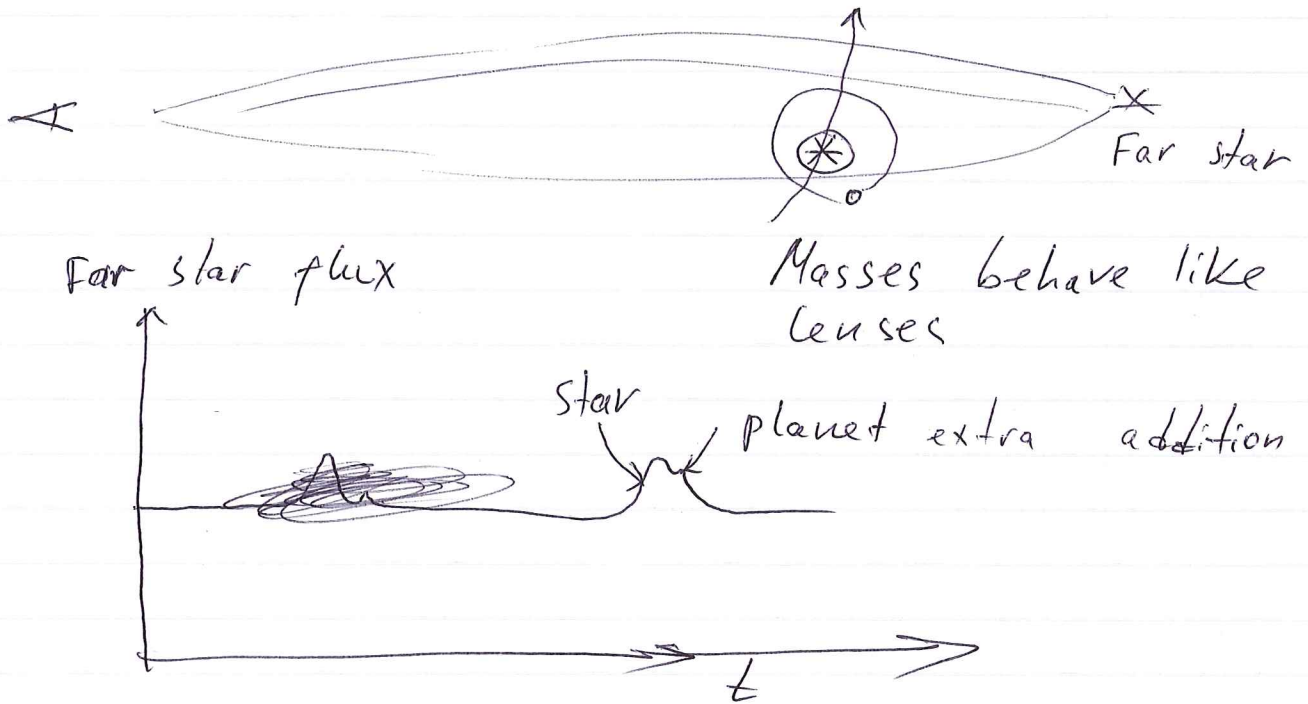 Far star
Far star flux
Masses behave like
lenses
star
planet extra addition
t